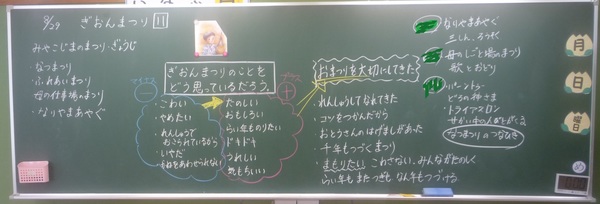 8/29 ぎおんまつり 11
みやこじまのまつり・ぎょうじ
・なつまつり
・ふれあいまつり
・母の仕事場のまつり
・なりやまあやぐ
ぎおんまつりのことを
どう思っているだろう。
マイナス
−
・こわい
・やめたい
・れんしゅうで
おこられているから
・いやだ
・をあわせられない
プラス
+
・たのしい
おもしろい
らい年もやりたい
ドキドキ
うれしい
気もちいい
おまつりを大切にしてきた
・れんしゅうしてなれてきた
・コツをつかんだから
・おとうさんのはげましがあった
・千年もつづくまつり
・まもりたい こわさない、みんながたのしく
らい年もまたつぎも なん年もつづける
なりやまあやぐ
三しん、ろうそく
母のしごと場のまつり
歌とおどり
パーントゥ
どろの神さま
・トライアスロン
なつまつりのつなひき
月
日
曜日
め